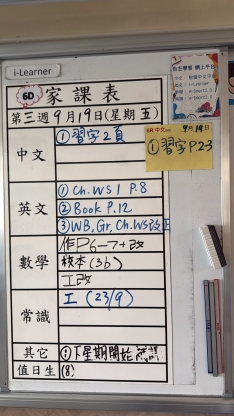 i-Learner
6D 家課表
第三週 9月19日(星期五)
中文 ①習字2頁
英文 ①Ch.WS 1 P.8
②Book P.12
③WB, Gr, Ch.WS改正
數學 作P6-7+改
樣本(3b)
工改
常識 工(23/9)
其它 ①下星期開始
值日生 (8)
6B 中文 9月19日
①習字P.2-3